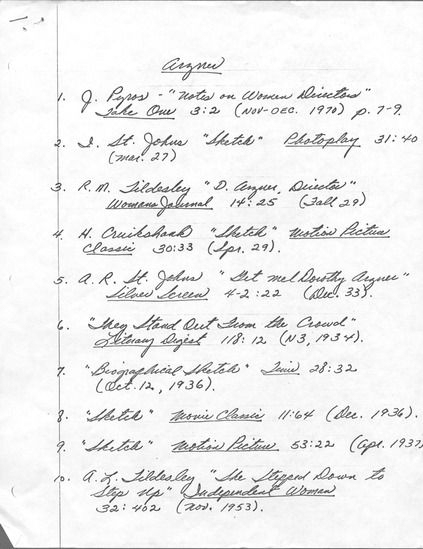 Arzner
1. J. Pyros - "Notes on Women Directors"
Take One 3:2 (Nov-Dec. 1970) p. 7-9.
2. I. St. Johns "Sketch" Photoplay 31:40
(Mar. 27)
3. R.M. Tildesley "D. Arzner, Director"
Womans Journal 14:25 (Jall 29)
4. H. Cruikshank "Sketch" Motion Picture
Classic 30:33 (Spr. 29).
5. A.R. St. Johns "Get Me! Dorothy Arzner"
Silver Screen 4-2:22 (Dec. 33).
6. "They Stand Out From the Crowd"
Literary Digest 118:12 (N3, 1934).
7. "Biographical Sketch" Time 28:32
(Oct. 12, 1936).
8. "Sketch" Movie Classic 11:64 (Dec. 1936).
9. "Sketch" Motion Picture 53:22 (Apr. 1937
10. A.L. Tildesley "She Stepped Down to
Step Up" Independent Woman
32:402 (Nov. 1953).